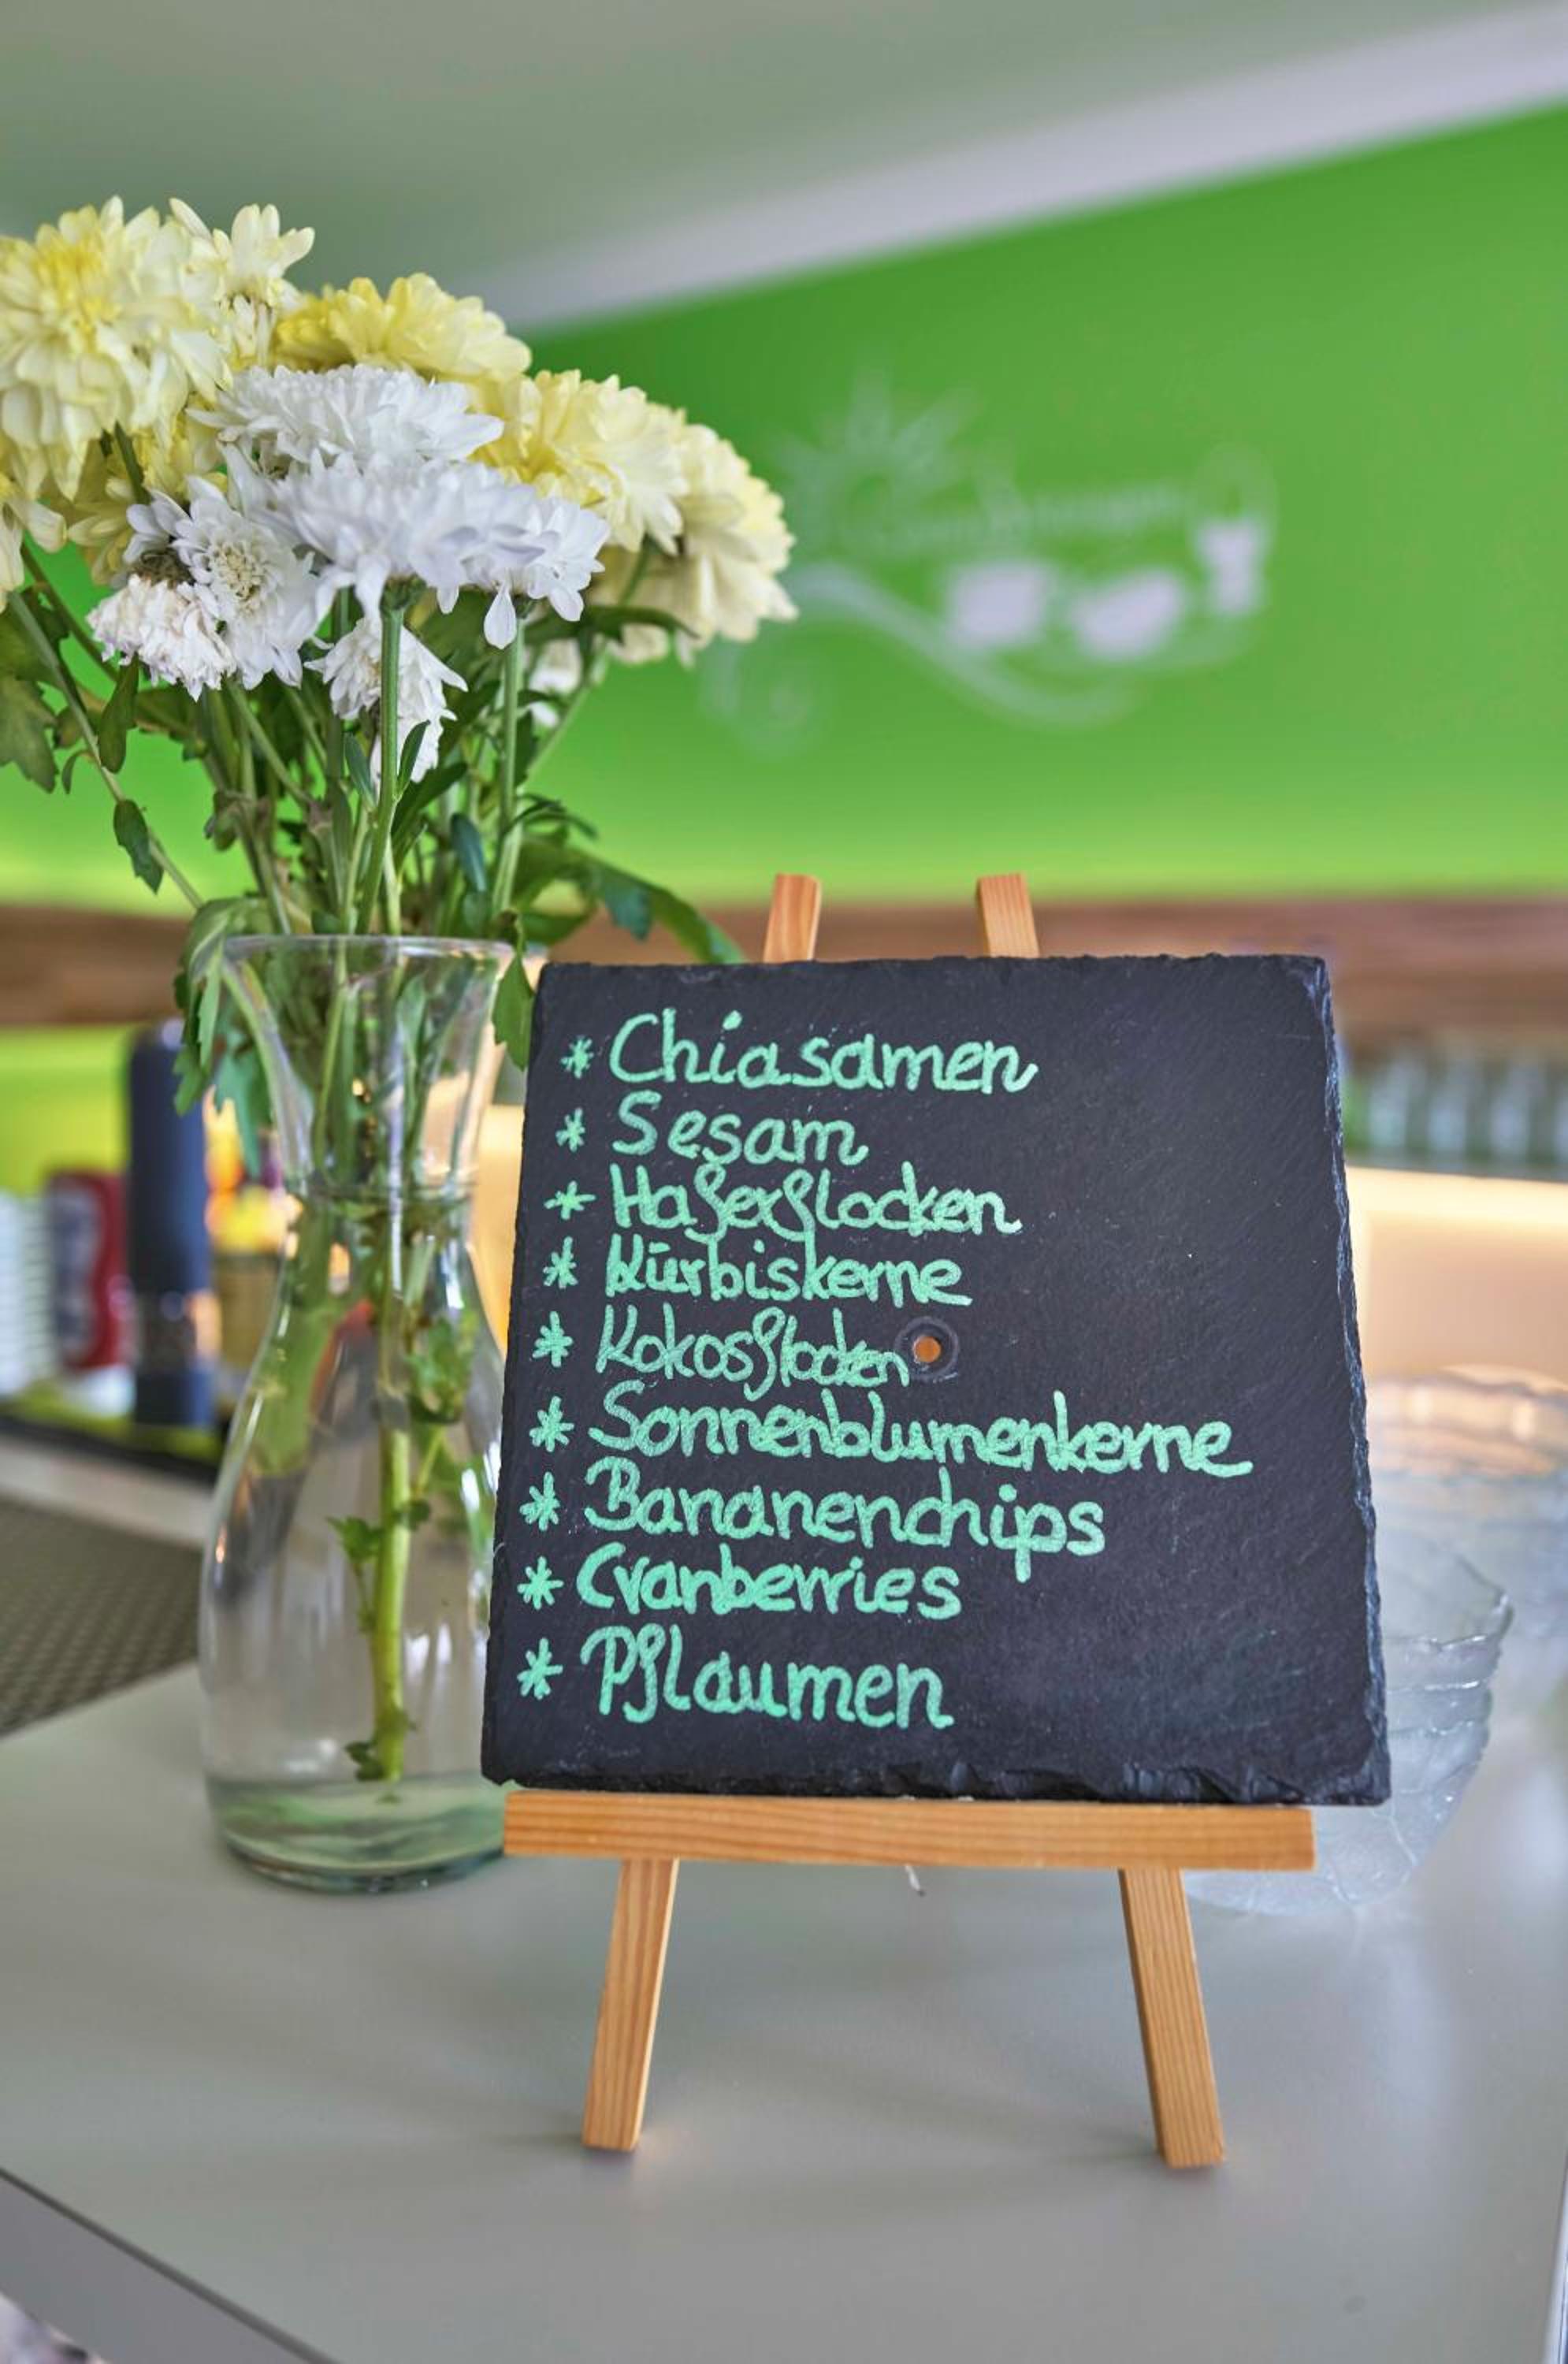 * Chiasamen
* Sesam
* Haferflocken
* Kürbiskerne
* Kokosflocken
* Sonnenblumenkerne
* Bananenchips
* Cranberries
* Pflaumen